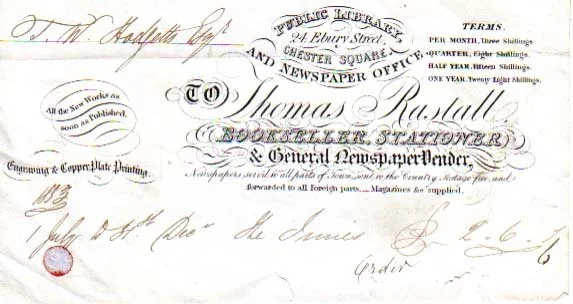 T. W. Hodgetts Esqr
PUBLIC LIBRARY,
24, Ebury Street,
CHESTER SQUARE,
AND NEWSPAPER OFFICE
TERMS.
PER MONTH, Three Shillings.
QUARTER, Eight Shillings.
HALF YEAR, Fifteen Shillings.
ONE YEAR, Twenty Eight Shillings.
All the New Works as
soon as Published.
TO Thomas Rastall,
BOOKSELLER, STATIONER,
& General Newspaper Vender,
Engraving & Copper Plate Printing.
Newspapers served to all parts of Town, sent to the Country Postage free, and
forwarded to all Foreign parts. Magazines &c supplied.
1 July to 31st Decr the Times £ 2 - 6 -
order